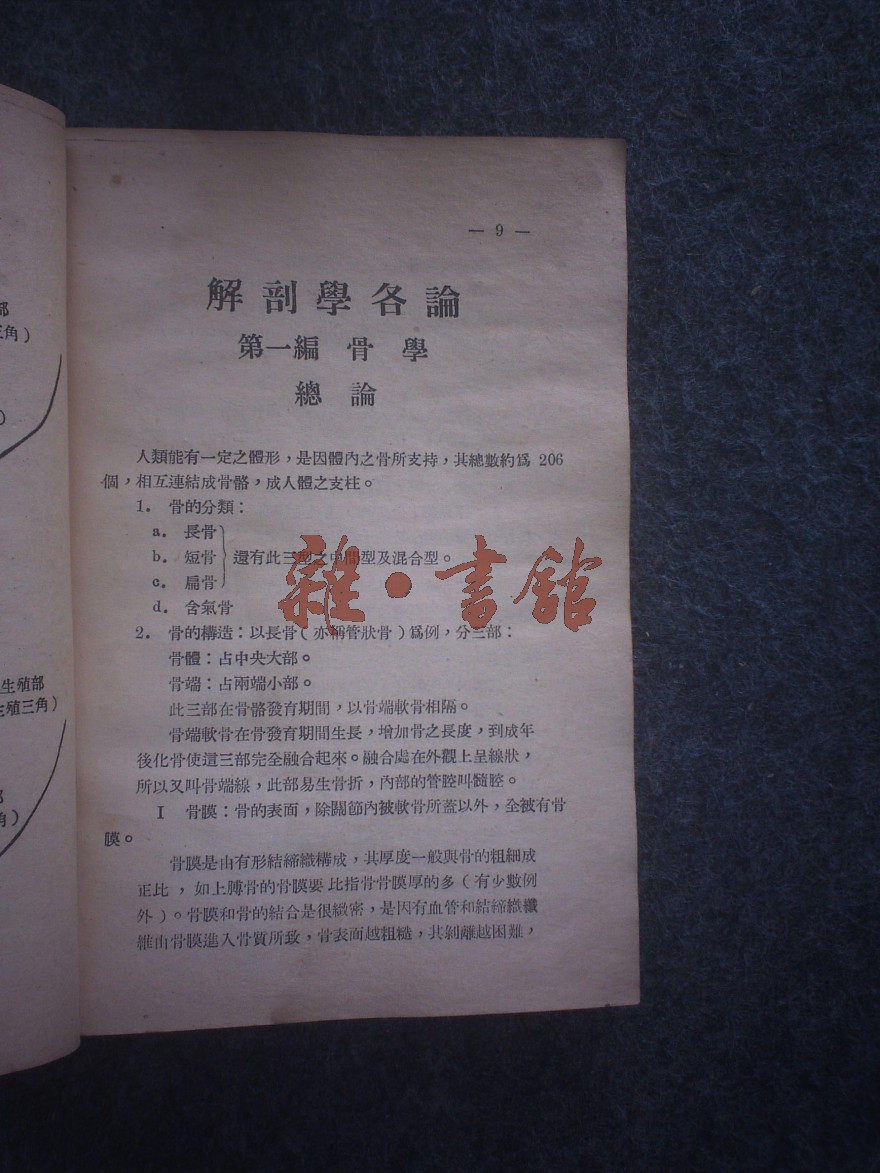 部
三角）
）
生殖部
生殖三角）
部
角）
— 9 —
解剖學各論
第一編 骨 學
總 論
人類能有一定之體形，是因體內之骨所支持，其總數約爲 206
個，相互連結成骨骼，成人體之支柱。
1. 骨的分類：
a. 長骨
b. 短骨 還有此三型之中間型及混合型。
c. 扁骨
d. 含氣骨
2. 骨的構造：以長骨（亦稱管狀骨）爲例，分三部：
骨體：占中央大部。
骨端：占兩端小部。
此三部在骨骼發育期間，以骨端軟骨相隔。
骨端軟骨在骨發育期間生長，增加骨之長度，到成年
後化骨使這三部完全融合起來。融合處在外觀上呈線狀，
所以又叫骨端線，此部易生骨折，內部的管腔叫髓腔。
I 骨膜：骨的表面，除關節內被軟骨所蓋以外，全被有骨
膜。
骨膜是由有形結締織構成，其厚度一般與骨的粗細成
正比，如上膊骨的骨膜要比指骨骨膜厚的多（有少數例
外）。骨膜和骨的結合是很緻密，是因有血管和結締織纖
維由骨膜進入骨質所致，骨表面越粗糙，其剝離越困難，
雜·書館